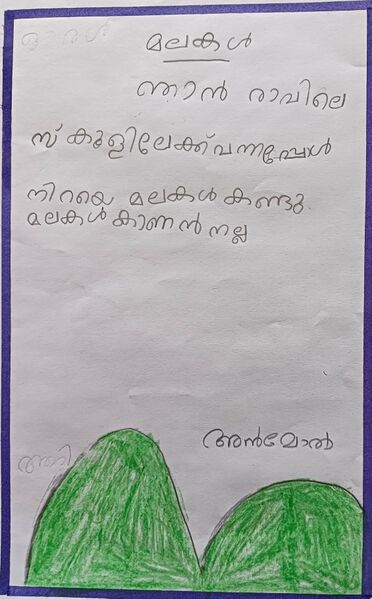 മലകൾ
ഞാൻ രാവിലെ
സ്കൂളിലേക്ക് വന്നപ്പോൾ
നിറയെ മലകൾ കണ്ടു.
മലകൾ കാണൻ നല്ല
അൻമോൽ